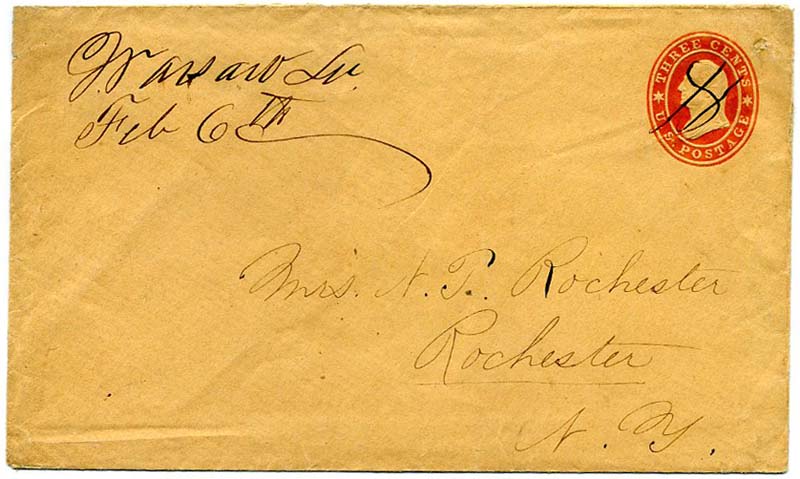 Warsaw
Feb 6th
THREE CENTS
U.S. POSTAGE
Mrs. N. T. Rochester
Rochester
N. Y.